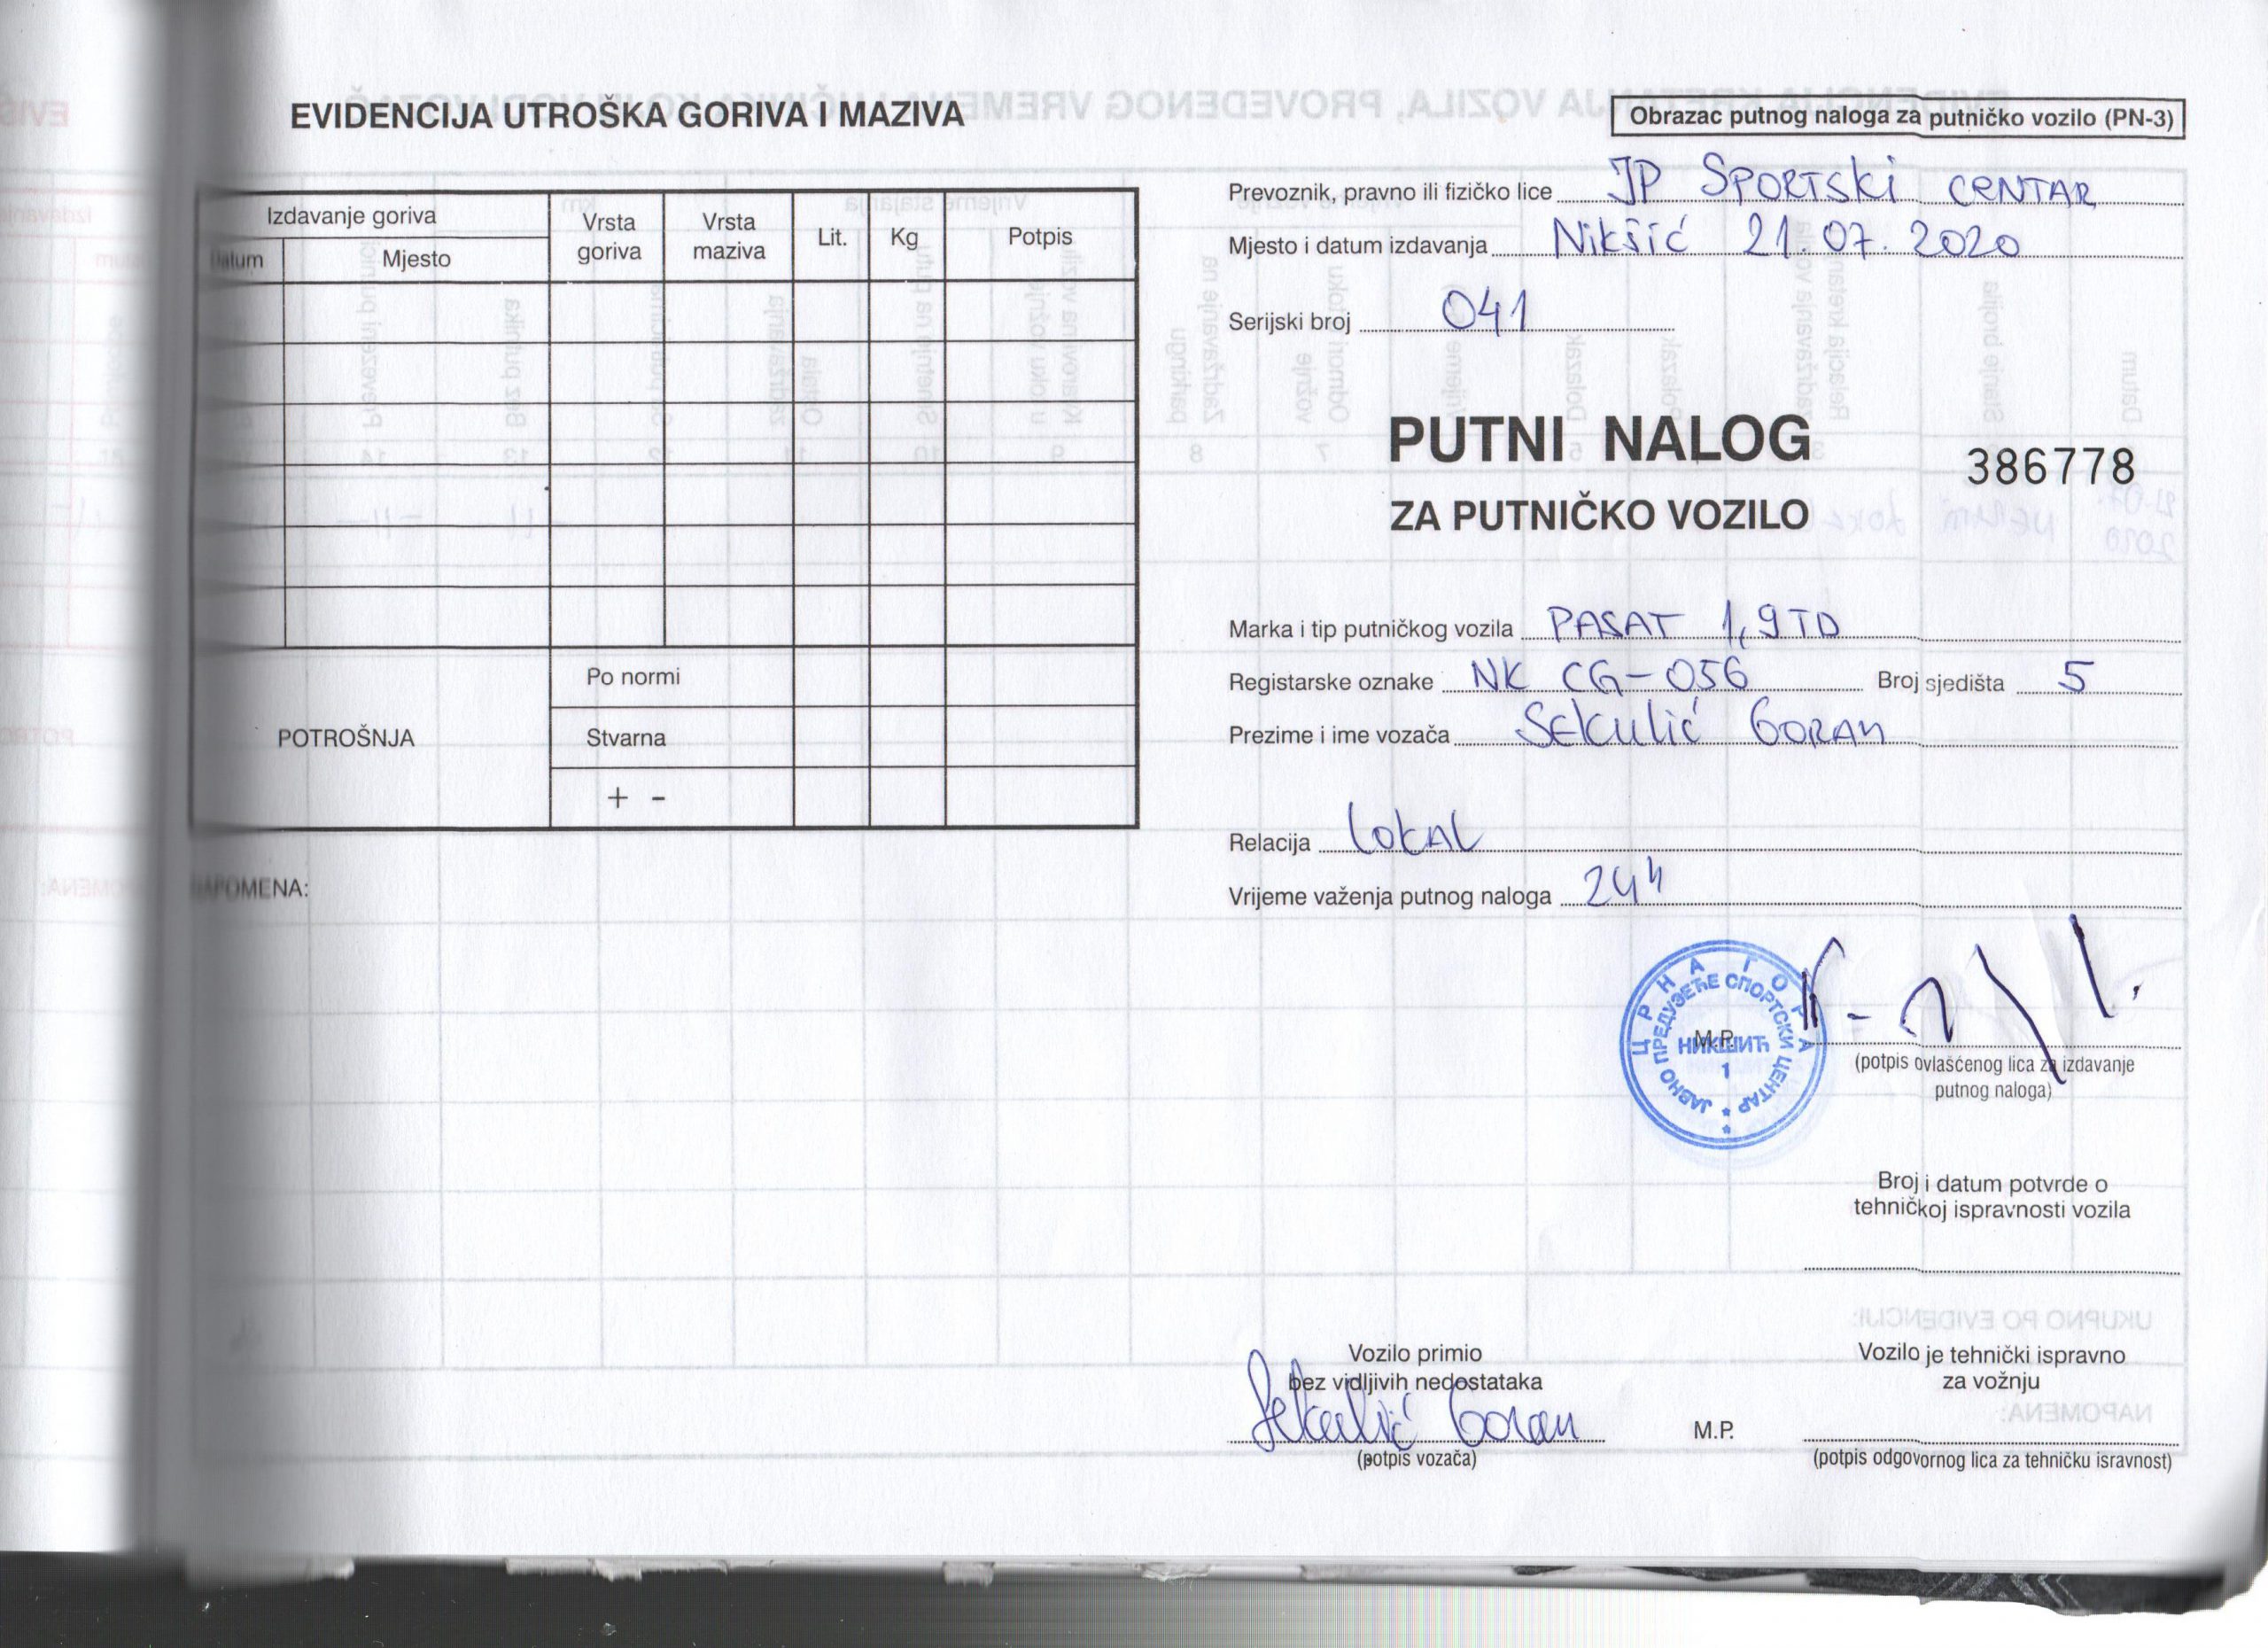 EVIDENCIJA UTROŠKA GORIVA I MAZIVA
Izdavanje goriva
Datum
Mjesto
Vrsta goriva
Vrsta maziva
Lit.
Kg
Potpis
POTROŠNJA
Po normi
Stvarna
+ -
NAPOMENA:
Obrazac putnog naloga za putničko vozilo (PN-3)
Prevoznik, pravno ili fizičko lice JP SPORTSKI CENTAR
Mjesto i datum izdavanja Nikšić 21.07.2020
Serijski broj 041
PUTNI NALOG
386778
ZA PUTNIČKO VOZILO
Marka i tip putničkog vozila PASAT 1,9TD
Registarske oznake NK CG-056 Broj sjedišta 5
Prezime i ime vozača Sekulić Goran
Relacija lokal
Vrijeme važenja putnog naloga 24h
ЦРНА ГОРА
ЈАВНО ПРЕДУЗЕЋЕ СПОРТСКИ ЦЕНТАР
НИКШИЋ
1
M.P.
(potpis ovlašćenog lica za izdavanje
putnog naloga)
Broj i datum potvrde o
tehničkoj ispravnosti vozila
Vozilo primio
bez vidljivih nedostataka
Sekulić Goran
(potpis vozača)
M.P.
Vozilo je tehnički ispravno
za vožnju
(potpis odgovornog lica za tehničku isravnost)